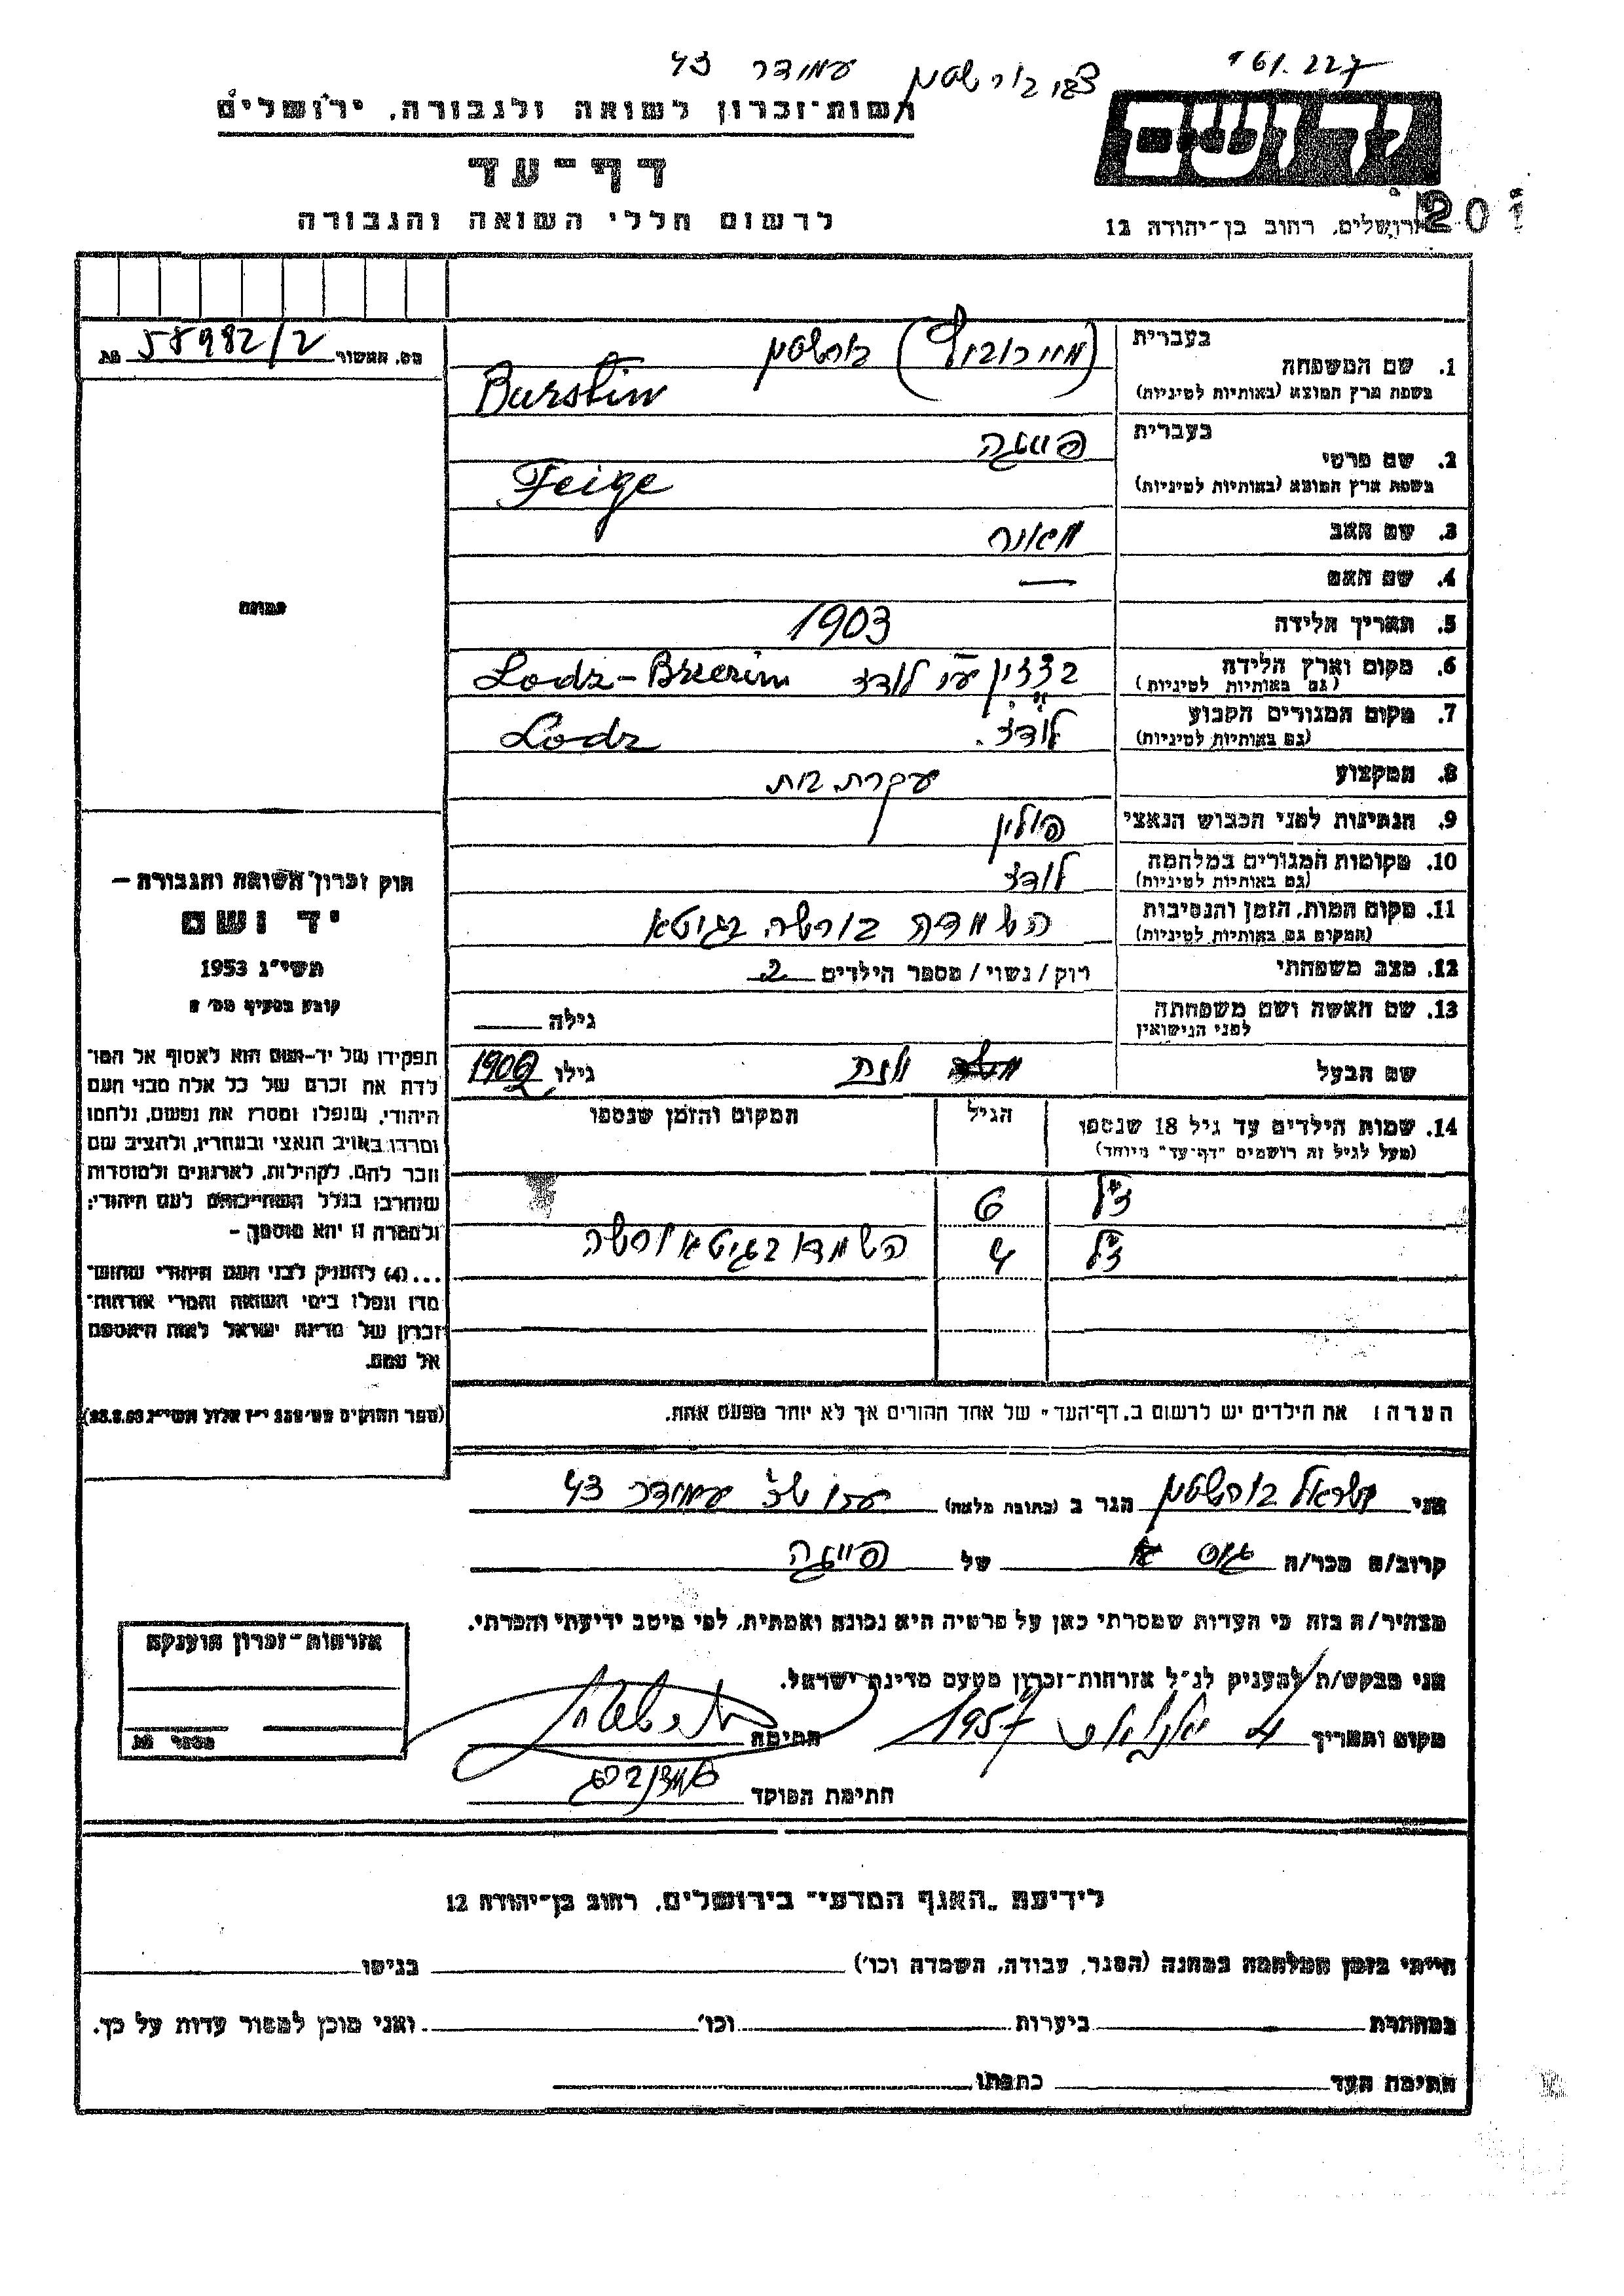 161.227
עמידר 43
רשות-זכרון לשואה ולגבורה, ירושלים
יד ושם
דף-עד
לרשום חללי השואה והגבורה
ירושלים, רחוב בן-יהודה 12
201
מס. האשור 58982/2
בעברית
1. שם המשפחה בורשטין
בשפת ארץ המוצא (באותיות לטיניות) Burstin
בעברית
2. שם פרטי פייגה
בשפת ארץ המוצא (באותיות לטיניות) Feige
3. שם האב מאיר
4. שם האם —
5. תאריך הלידה 1903
6. מקום וארץ הלידה בזזין ע״י לודז Lodz-Brzezin
(גם באותיות לטיניות)
7. מקום המגורים הקבוע לודז. Lodz
(גם באותיות לטיניות)
8. המקצוע עקרת בית
9. הנתינות לפני הכבוש הנאצי פולין
10. מקומות המגורים במלחמה לודז
(גם באותיות לטיניות)
11. מקום המות, הזמן והנסיבות הושמדה בורשה בגיטא
(המקום גם באותיות לטיניות)
12. מצב משפחתי רוק/נשוי/ מספר הילדים 2
13. שם האשה ושם משפחתה גילה
לפני הנישואין
שם הבעל גילו 1902
14. שמות הילדים עד גיל 18 שנספו הגיל המקום והזמן שנספו
(מעל לגיל זה רושמים "דף-עד" מיוחד)
ז״ל 6
ז״ל 4 הושמדו בגיטא ורשה
הערה: את הילדים יש לרשום ב„דף-העד" של אחד ההורים אך לא יותר מפעם אחת.
תמונה
חוק זכרון השואה והגבורה —
יד ושם
תשי״ג 1953
קובע בסעיף מס׳ 2
תפקידו של יד-ושם הוא לאסוף אל המו־
לדת את זכרם של כל אלה מבני העם
היהודי, שנפלו ומסרו את נפשם, נלחמו
ומרדו באויב הנאצי ובעוזריו, ולהציב שם
וזכר להם, לקהילות, לארגונים ולמוסדות
שנחרבו בגלל השתייכותם לעם היהודי;
ולמטרה זו יהא מוסמך —
...(4) להעניק לבני העם היהודי שהוש־
מדו ונפלו בימי השואה והמרי אזרחות־
זכרון של מדינת ישראל לאות היאספם
אל עמם.
(ספר החוקים מס׳ 132 י״ז אלול תשי״ג 28.8.53)
אני ישראל בורשטין הגר ב (כתובת מלאה) עמידר 43
קרוב/ה מכר/ה גיס של פייגה
מצהיר/ה בזה כי העדות שמסרתי כאן על פרטיה היא נכונה ואמתית, לפי מיטב ידיעתי והכרתי.
אני מבקש/ת להעניק לנ״ל אזרחות-זכרון מטעם מדינת ישראל.
מקום ותאריך 4 1957 חתימה
חתימת הפוקד
אזרחות-זכרון הוענקה
מספר
לידיעת „האגף המדעי" בירושלים, רחוב בן-יהודה 12
הייתי בזמן המלחמה במחנה (הסגר, עבודה, השמדה וכו׳) בגיטו
במחתרת ביערות וכו׳ ואני מוכן למסור עדות על כך.
חתימת העד כתבתו